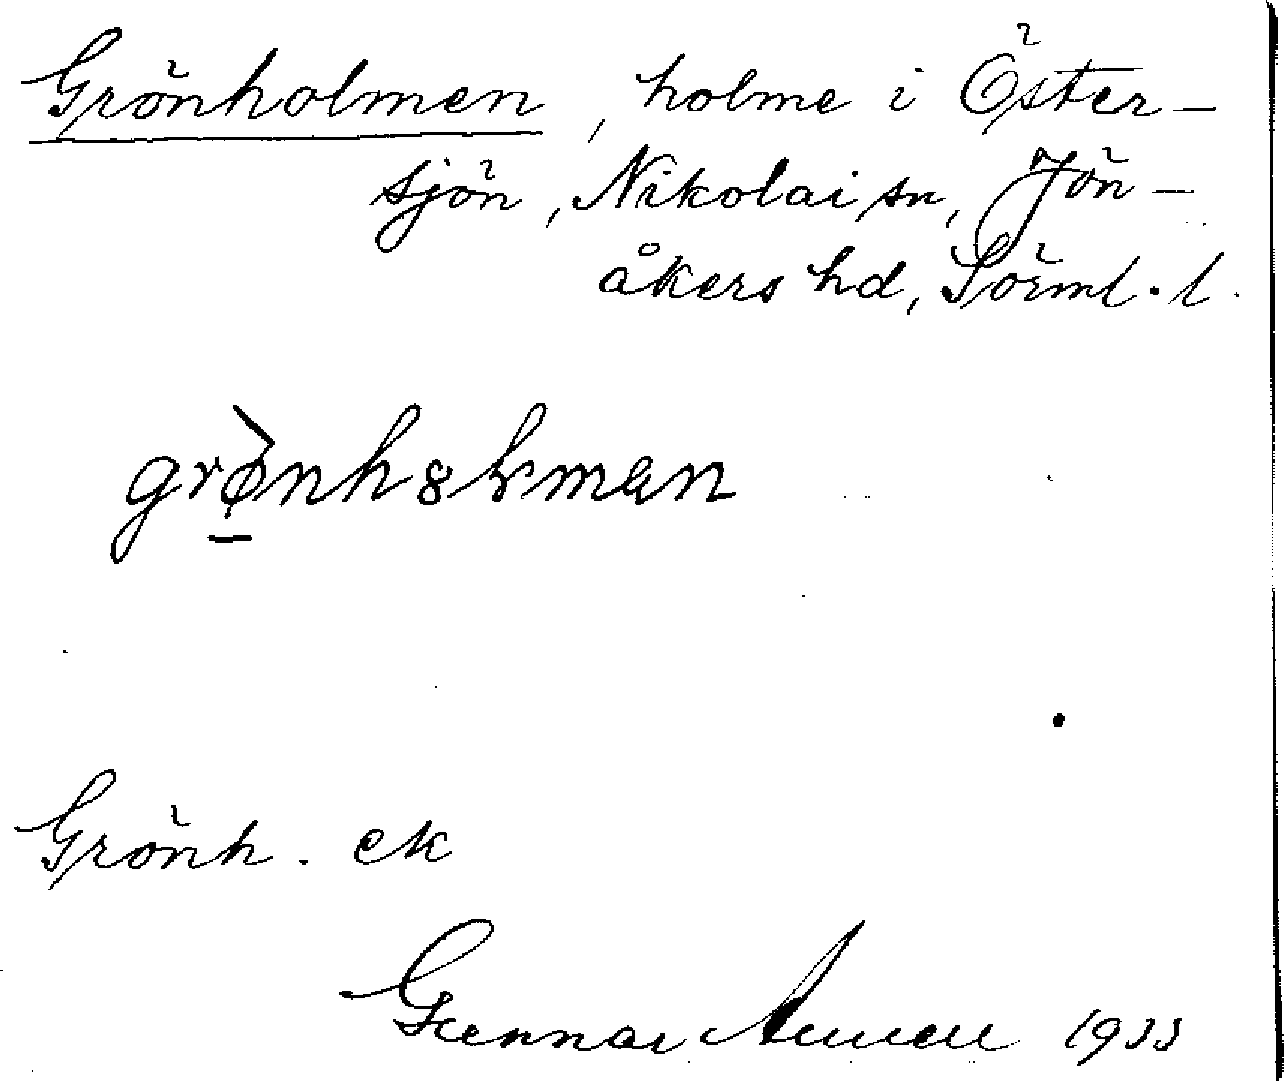 Grönholmen, holme i Öster-
sjön, Nikolai sn, Jön-
åkers hd, Sörml. l.
Grönh. ek
Gunnar 1933